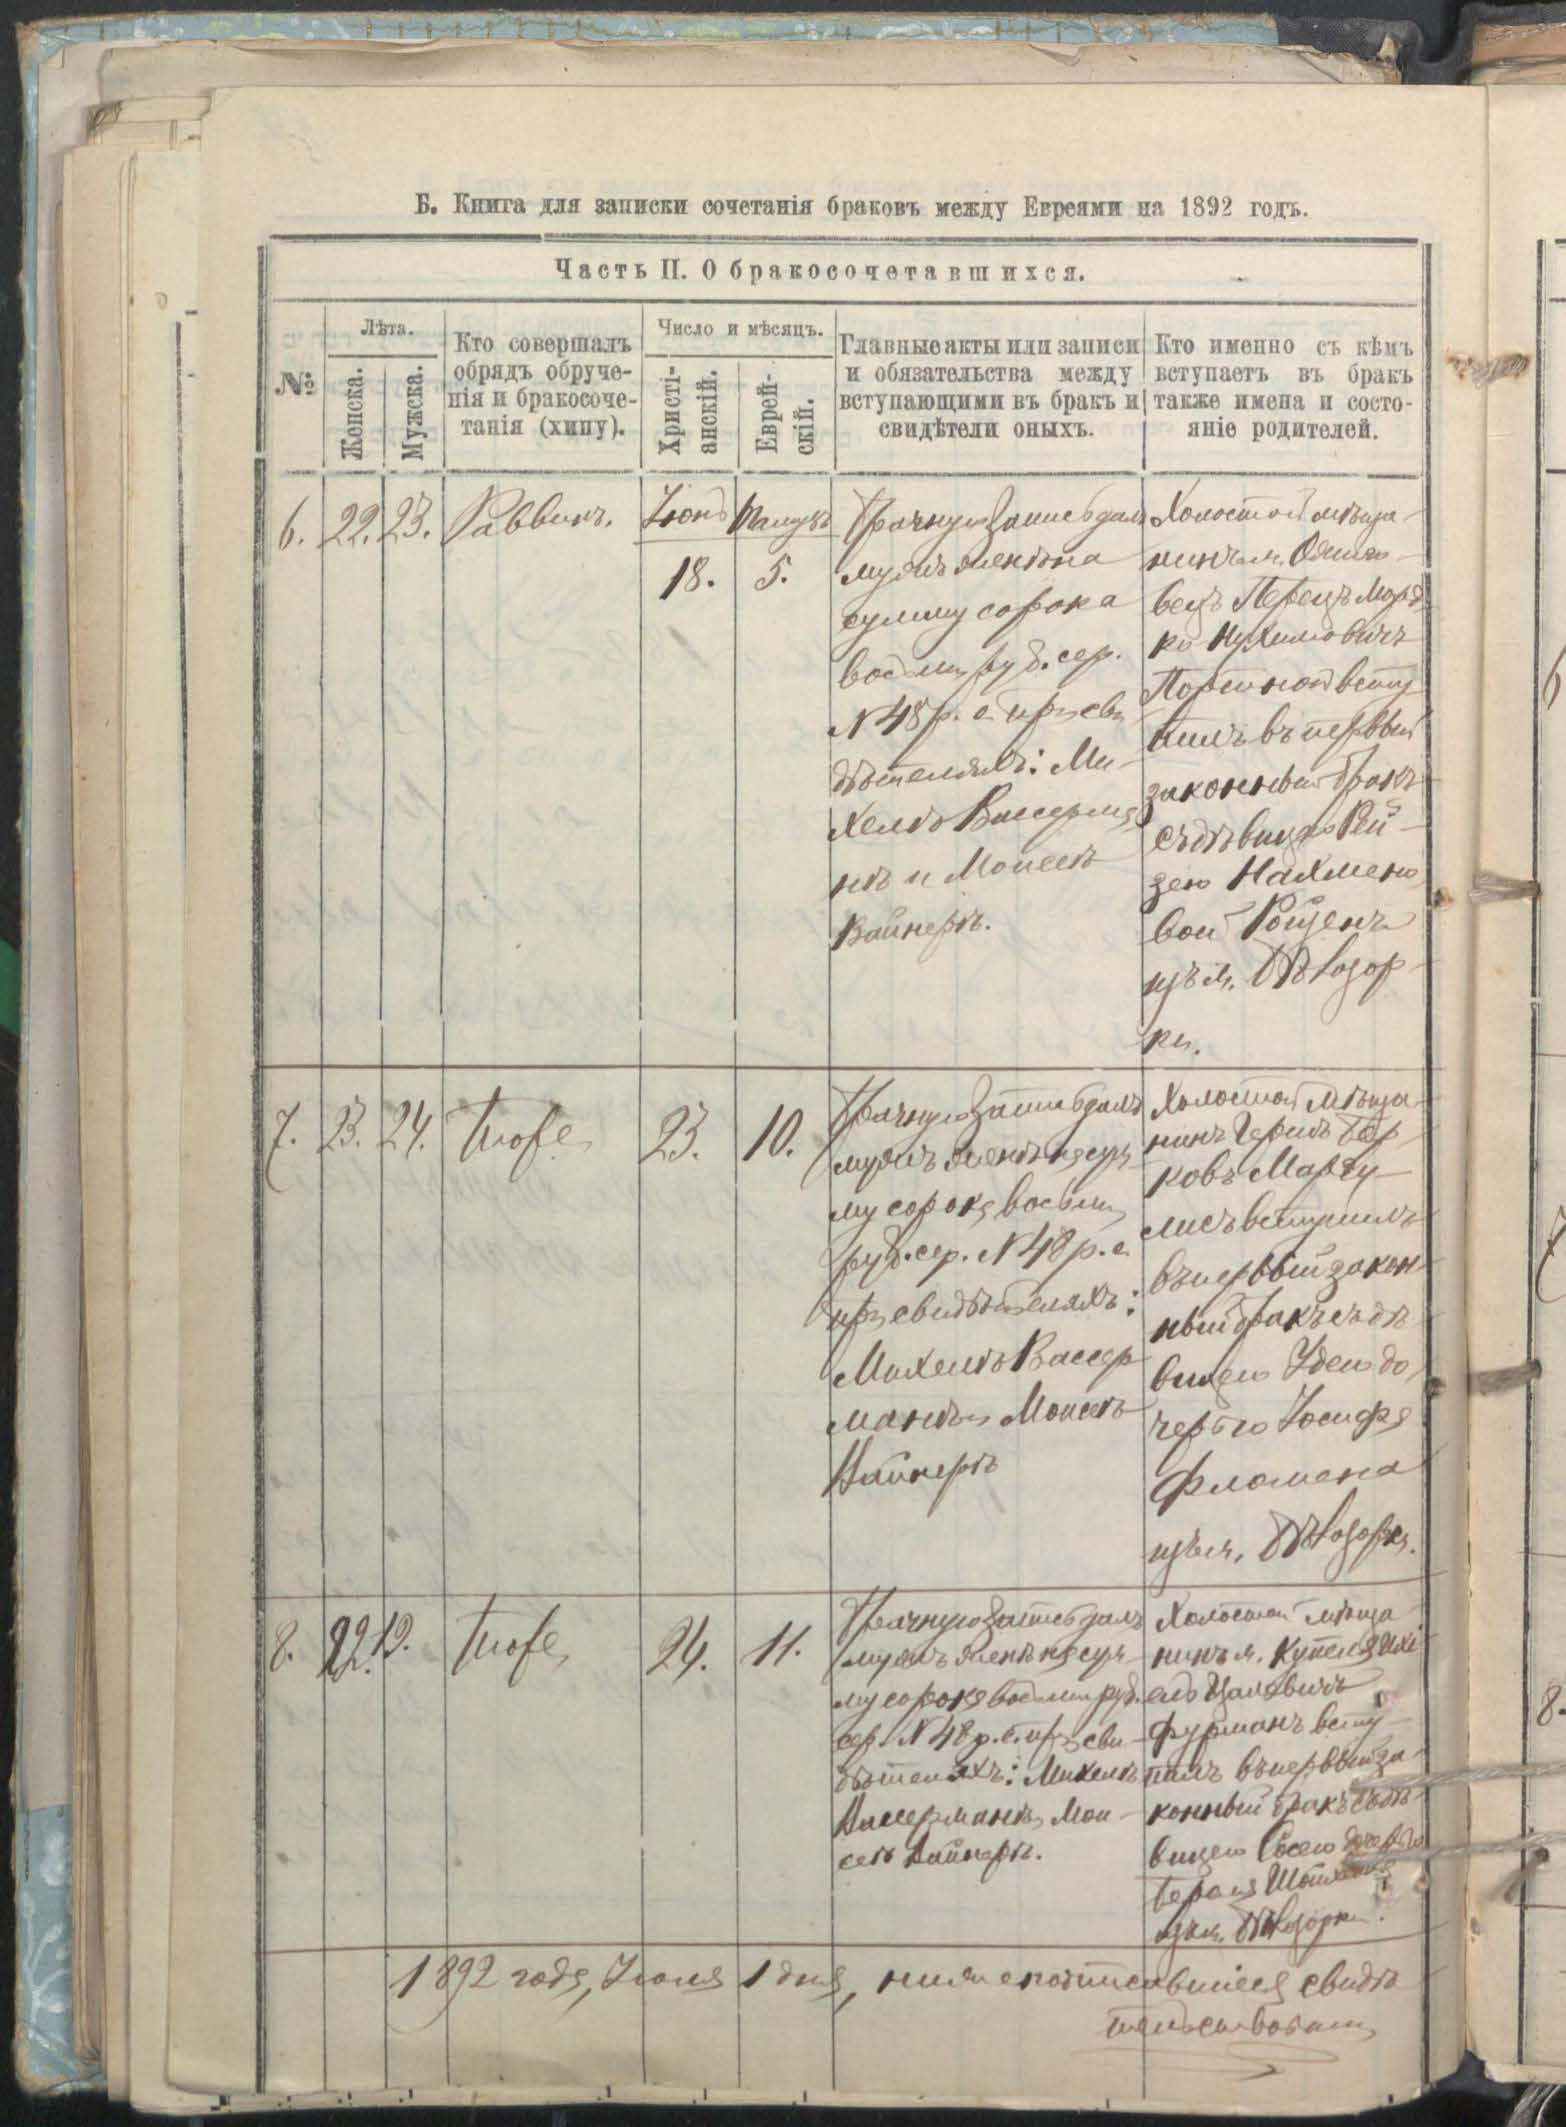 Б. Книга для записки сочетанія браковъ между Евреями на 1892 годъ.
Часть II. О бракосочетавшихся.
№
Лѣта.
Женска.
Мужска.
Кто совершалъ
обрядъ обруче-
нія и бракосоче-
танія (хипу).
Число и мѣсяцъ.
Христі-
анскій.
Еврей-
скій.
Главные акты или записи
и обязательства между
вступающими въ бракъ и
свидѣтели оныхъ.
Кто именно съ кѣмъ
вступаетъ въ бракъ
также имена и состо-
яніе родителей.
6. 22. 23. Раввинъ.
Іюнь
18.
5.
Брачную запись далъ
мужъ женѣ на
сумму сорока
восьми руб. сер.
№ 48 р. с. при сви
дѣтеляхъ: Ми-
хелѣ Вассерма
нѣ и Моисеѣ
Вайнерѣ.
Холостой мѣща-
нинъ м.
вецъ Перецъ Морд
ко Нухимовичъ
Портной всту
пилъ въ первый
законный бракъ
съ дѣвицею Рей-
зею Нахмено
вой
изъ м. Бѣлозор-
ки.
7. 23. 24. Тоже
23. 10.
Брачную запись далъ
мужъ женѣ на сум
му сорока восьми
руб. сер. № 48 р. с.
при свидѣтеляхъ:
Михелѣ Вассер
манѣ и Моисеѣ
Вайнерѣ
Холостой мѣща-
нинъ Гершъ Бер
ковъ Маргу-
лисъ вступилъ
въ первый закон
ный бракъ съ дѣ
вицею Удею до
черью Іосифа
Фломена
изъ м. Бѣлозорки.
8. 22. 19. Тоже
24. 11.
Брачную запись далъ
мужъ женѣ на сум-
му сорока восьми руб.
сер. № 48 р. с. при сви-
дѣтеляхъ: Михелѣ
Вассерманѣ и Мои-
сеѣ Вайнерѣ.
Холостой мѣща-
нинъ м. Купеля
Фурманъ всту-
пилъ въ первый за-
конный бракъ съ дѣ-
вицею Сосею дочерью
Береля
изъ м. Бѣлозорки.
1892 года, Іюля 1 дня, нижеподписавшіеся свидѣ
тельствовали